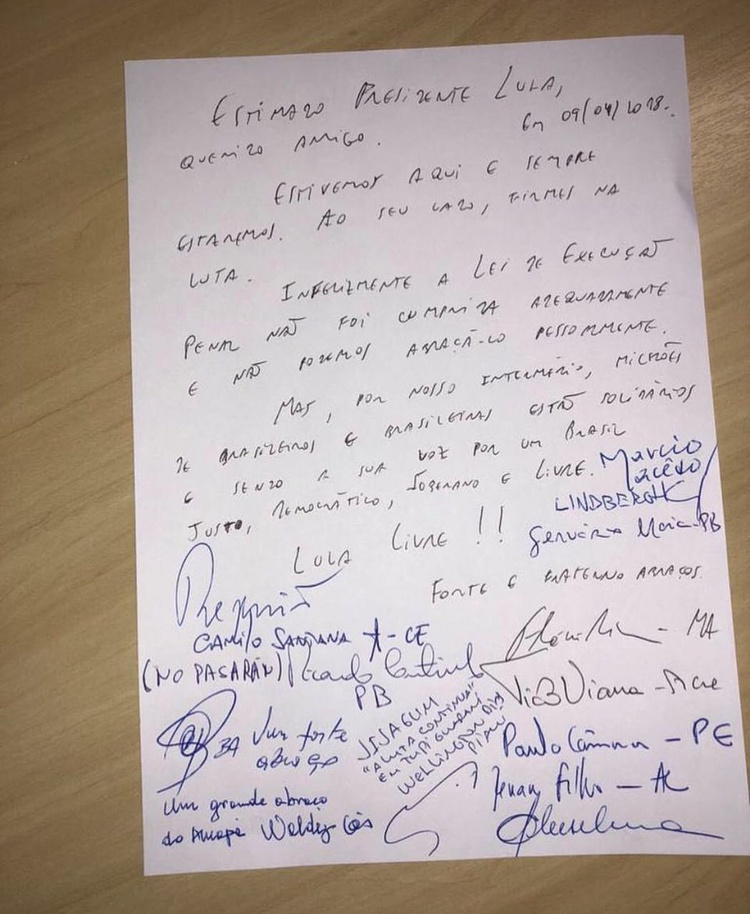 ESTIMADO PRESIDENTE LULA,
QUERIDO AMIGO. Em 09/04/2018.
ESTIVEMOS AQUI E SEMPRE
ESTAREMOS. AO SEU LADO, FIRMES NA
LUTA.
INFELIZMENTE A LEI DE EXECUÇÃO
PENAL NÃO FOI CUMPRIDA ADEQUADAMENTE
E NÃO PODEMOS ABRAÇÁ-LO PESSOALMENTE.
MAS, POR NOSSO INTERMÉDIO, MILHÕES
DE BRASILEIROS E BRASILEIRAS ESTÃO SOLIDÁRIOS
E SENDO A SUA VOZ POR UM BRASIL
JUSTO, DEMOCRÁTICO, SOBERANO E LIVRE.
Marcio
Macêdo
LINDBERGH
Gervásio Maia-PB
LULA LIVRE !!
FORTE E FRATERNO ABRAÇO.
Requião
CAMILO SANTANA - CE
(NO PASARÁN) Ricardo Coutinho
PB
- MA
Viana - Acre
BA Um forte
abraço
JIJAGUM
"A LUTA CONTINUA"
EM TUPI GUARANI
WELLINGTON DIAS
PIAUÍ
Paulo Câmara - PE
Renan Filho - AL
Um grande abraço
do Amapá Waldez Góes